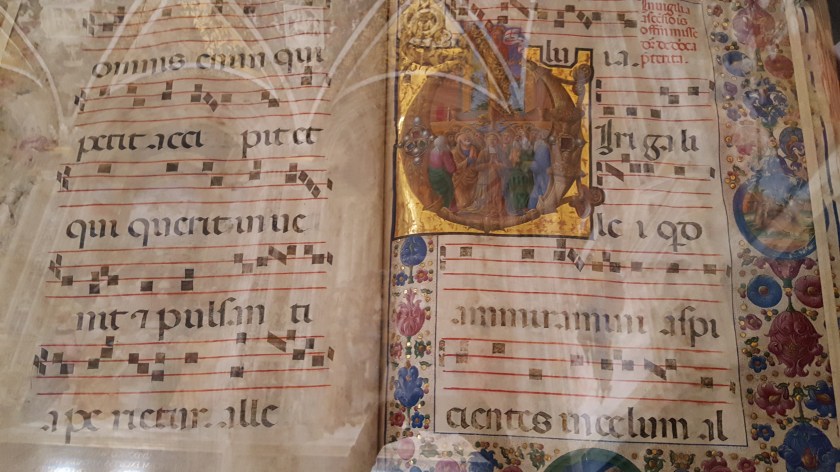 omnis enim qui
petit acci pit et
qui querit in ue
nit ⁊ pulsan ti
ape rietur. alle
In vigilia
lu ia.
iri ga li
le i qd
ammiramini aspi
cientes in celum al